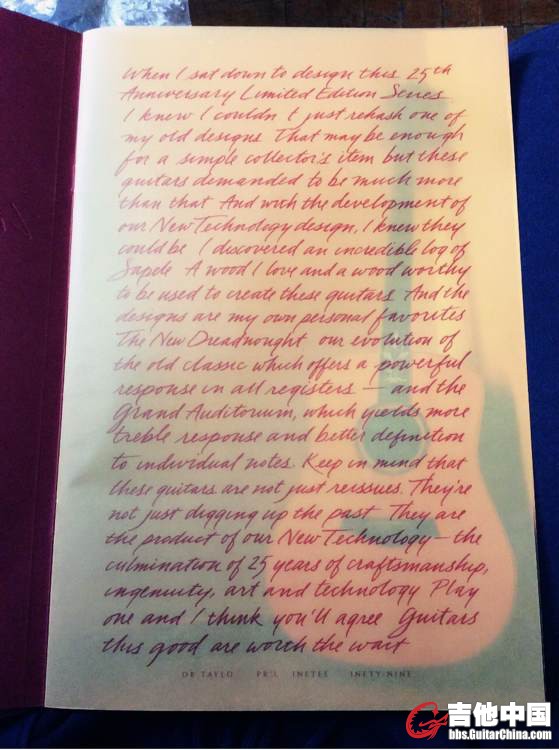 When I sat down to design this 25th
Anniversary Limited Edition Series
I knew I couldn t just rehash one of
my old designs That may be enough
for a simple collector's item but these
guitars demanded to be much more
than that And with the development of
our New Technology design, I knew they
could be I discovered an incredible log of
Sapele A wood I love and a wood worthy
to be used to create these guitars And the
designs are my own personal favorites
The New Dreadnought our evolution of
the old classic which offers a powerful
response in all registers — and the
Grand Auditorium, which yields more
treble response and better definition
to individual notes. Keep in mind that
these guitars are not just reissues. They're
not just digging up the past They are
the product of our New Technology — the
culmination of 25 years of craftsmanship,
ingenuity, art and technology Play
one and I think you'll agree Guitars
this good are worth the wait
INETY-NINE
吉他中国
bbs.GuitarChina.com